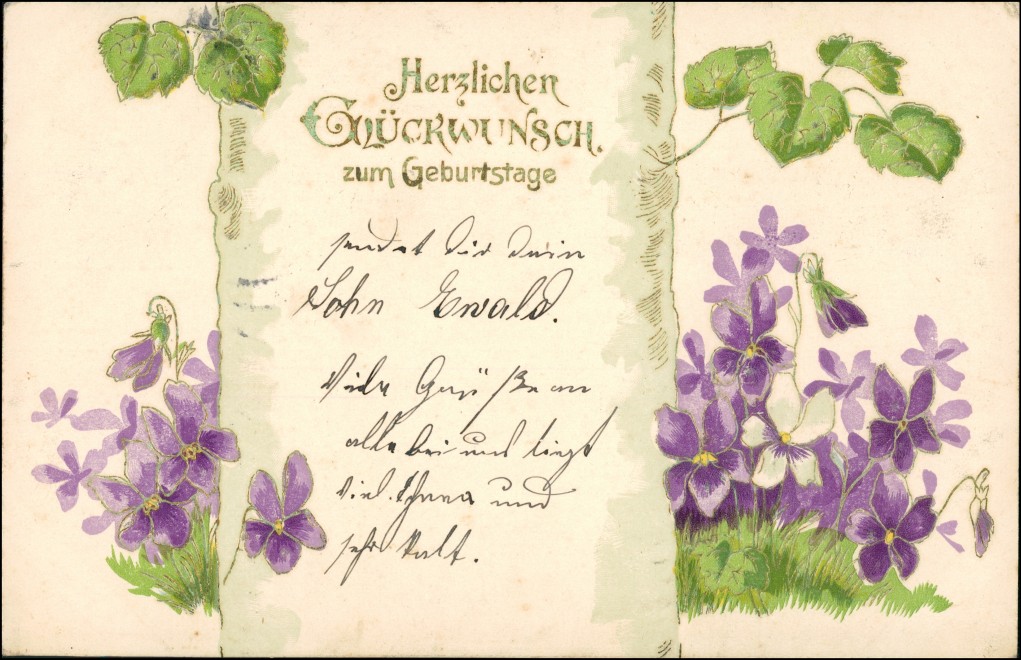 Herzlichen
Glückwunsch.
zum Geburtstage
sendet Dir Dein
Sohn Ewald.
Viele Grüße an
alle bei uns liegt
viel Schnee und
sehr kalt.